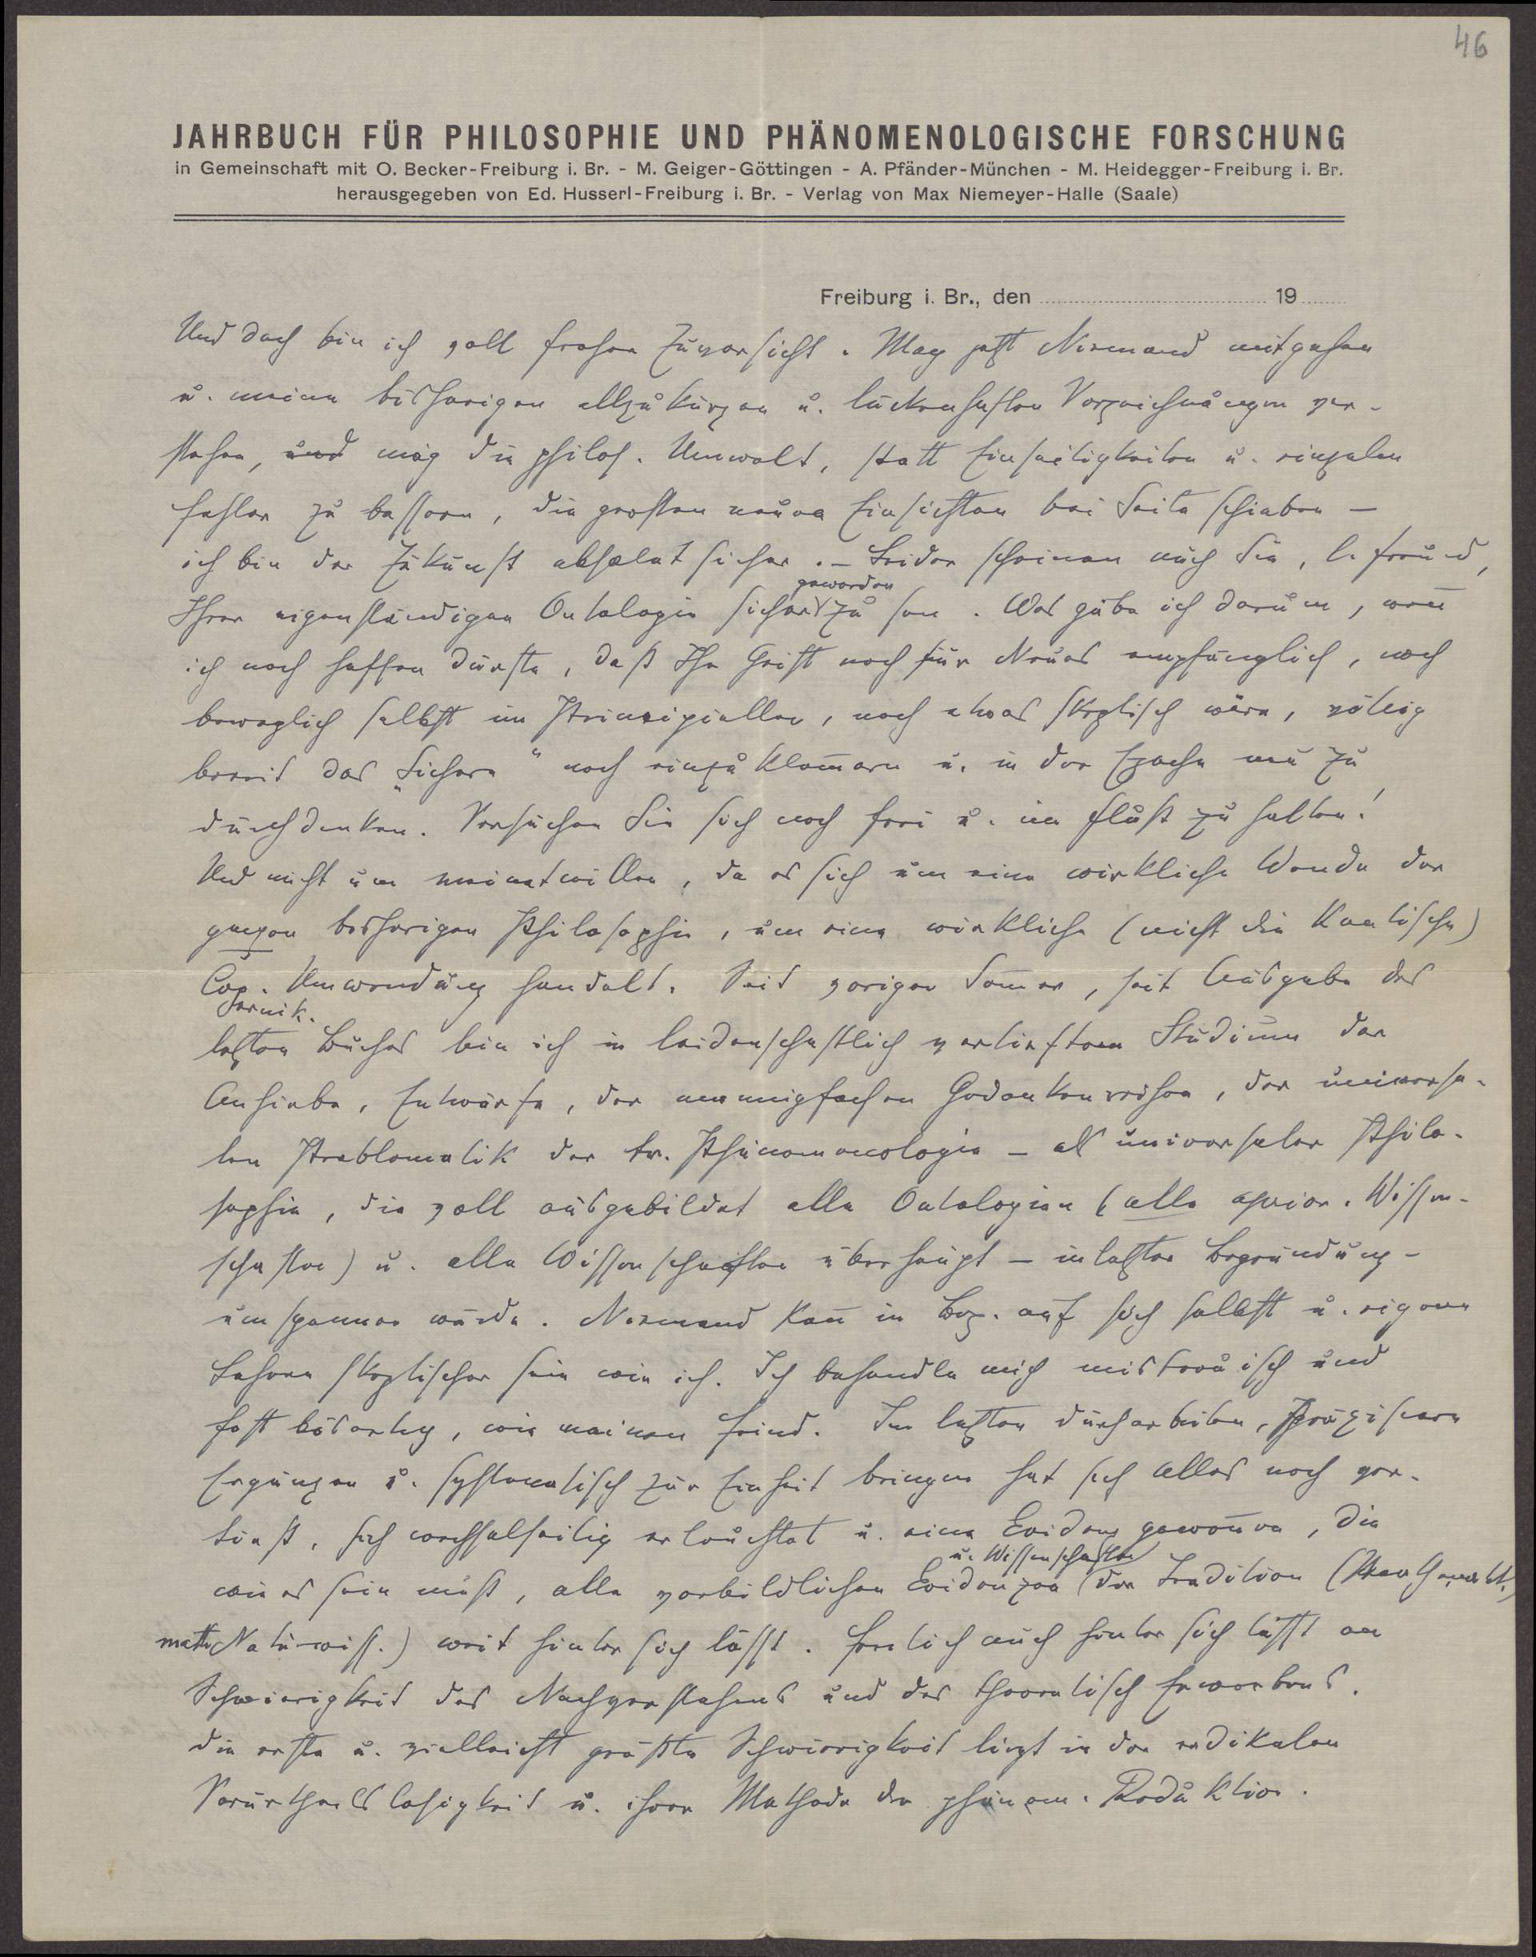 46
JAHRBUCH FÜR PHILOSOPHIE UND PHÄNOMENOLOGISCHE FORSCHUNG
in Gemeinschaft mit O. Becker-Freiburg i. Br. - M. Geiger-Göttingen - A. Pfänder-München - M. Heidegger-Freiburg i. Br.
herausgegeben von Ed. Husserl-Freiburg i. Br. - Verlag von Max Niemeyer-Halle (Saale)
Freiburg i. Br., den 19
Und doch bin ich voll froher Zuversicht. Mag jetzt Niemand mitgehen
u. meine bisherigen allzukurzen u. lückenhaften Vorzeichnungen ver-
stehen, und mag die philos. Umwelt, statt Einseitigkeiten u. einzelne
Fehler zu bessern, die großen neuen Einsichten bei Seite schieben —
ich bin der Zukunft absolut sicher. — Leider scheinen auch Sie, l. Freund,
geworden
Ihrer eigenständigen Ontologie sicher zu sein. Was gäbe ich darum, wen̅
ich noch hoffen dürfte, daß Ihr Geist noch für Neues empfänglich, noch
beweglich selbst im Prinzipiellen, noch etwas skeptisch wäre, völlig
bereit das „Sichere" noch einzuklam̅ern u. in der Epoche neu zu
durchdenken. Versuchen Sie sich noch frei u. im Fluß zu halten!
Und nicht um meinetwillen, da es sich um eine wirkliche Wende der
ganzen bisherigen Philosophie, um eine wirkliche (nicht die Kantische)
Cop. Umwendung handelt. Seit vorigem Som̅er, seit Ausgabe des
pernik.
letzten Buches bin ich in leidenschaftlich vertieftem Studium der
Anhiebe, Entwürfe, der mannigfachen Gedankenreihen, der universa-
len Problematik der tr. Phänomenologie — als universaler Philo-
sophie, die voll ausgebildet alle Ontologien (alle aprior. Wissen-
schaften) u. alle Wissenschaften überhaupt — in letzter Begründung —
umspannen würde. Niemand kan̅ in Bez. auf sich selbst u. eigene
Lehren skeptischer sein wie ich. Ich behandle mich mistrauisch und
fast bösartig, wie meinen Feind. Im letzten Durcharbeiten, Präzisieren
Ergänzen u. systematisch zur Einheit bringen hat sich Alles noch ver-
tieft, sich wechselseitig erleuchtet u. eine Evidenz gewon̅en, die
u. Wissenschaften
wie es sein muß, alle vorbildlichen Evidenzen der Tradition
math. Naturwiss.) weit hinter sich läßt. Freilich auch hinter sich läßt an
Schwierigkeit des Nachverstehens und des theoretisch Erwerbens.
Die erste u. vielleicht größte Schwierigkeit liegt in der radikalen
Vorurtheilslosigkeit u. ihrer Methode der phänom. Reduktion.